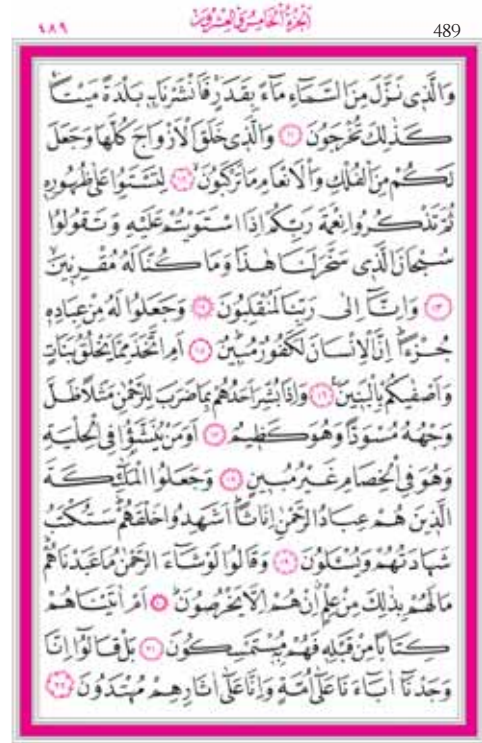 ٤٨٩ الجزء الخامس والعشرون 489
وَالَّذِى نَزَّلَ مِنَ السَّمَٓاءِ مَٓاءً بِقَدَرٍۚ فَاَنْشَرْنَا بِهٖ بَلْدَةً مَيْتًاۚ
كَذٰلِكَ تُخْرَجُونَ ﴿١١﴾ وَالَّذِى خَلَقَ الْاَزْوَاجَ كُلَّهَا وَجَعَلَ
لَكُمْ مِنَ الْفُلْكِ وَالْاَنْعَامِ مَا تَرْكَبُونَۙ ﴿١٢﴾ لِتَسْتَوُ۫ا عَلٰى ظُهُورِهٖ
ثُمَّ تَذْكُرُوا نِعْمَةَ رَبِّكُمْ اِذَا اسْتَوَيْتُمْ عَلَيْهِ وَتَقُولُوا
سُبْحَانَ الَّذِى سَخَّرَ لَنَا هٰذَا وَمَا كُنَّا لَهُ مُقْرِنٖينَۙ
﴿١٣﴾ وَاِنَّٓا اِلٰى رَبِّنَا لَمُنْقَلِبُونَ ﴿١٤﴾ وَجَعَلُوا لَهُ مِنْ عِبَادِهٖ
جُزْءًاۜ اِنَّ الْاِنْسَانَ لَكَفُورٌ مُبٖينٌ ﴿١٥﴾ اَمِ اتَّخَذَ مِمَّا يَخْلُقُ بَنَاتٍ
وَاَصْفٰيكُمْ بِالْبَنٖينَ ﴿١٦﴾ وَاِذَا بُشِّرَ اَحَدُهُمْ بِمَا ضَرَبَ لِلرَّحْمٰنِ مَثَلًا ظَلَّ
وَجْهُهُ مُسْوَدًّا وَهُوَ كَظٖيمٌ ﴿١٧﴾ اَوَمَنْ يُنَشَّؤُا فِى الْحِلْيَةِ
وَهُوَ فِى الْخِصَامِ غَيْرُ مُبٖينٍ ﴿١٨﴾ وَجَعَلُوا الْمَلٰٓئِكَةَ
الَّذٖينَ هُمْ عِبَادُ الرَّحْمٰنِ اِنَاثًاۜ اَشَهِدُوا خَلْقَهُمْۜ سَتُكْتَبُ
شَهَادَتُهُمْ وَيُسْـَٔلُونَ ﴿١٩﴾ وَقَالُوا لَوْ شَٓاءَ الرَّحْمٰنُ مَا عَبَدْنَاهُمْۜ
مَا لَهُمْ بِذٰلِكَ مِنْ عِلْمٍۗ اِنْ هُمْ اِلَّا يَخْرُصُونَۜ ﴿٢٠﴾ اَمْ اٰتَيْنَاهُمْ
كِتَابًا مِنْ قَبْلِهٖ فَهُمْ بِهٖ مُسْتَمْسِكُونَ ﴿٢١﴾ بَلْ قَالُٓوا اِنَّا
وَجَدْنَٓا اٰبَٓاءَنَا عَلٰٓى اُمَّةٍ وَاِنَّا عَلٰٓى اٰثَارِهِمْ مُهْتَدُونَ ﴿٢٢﴾